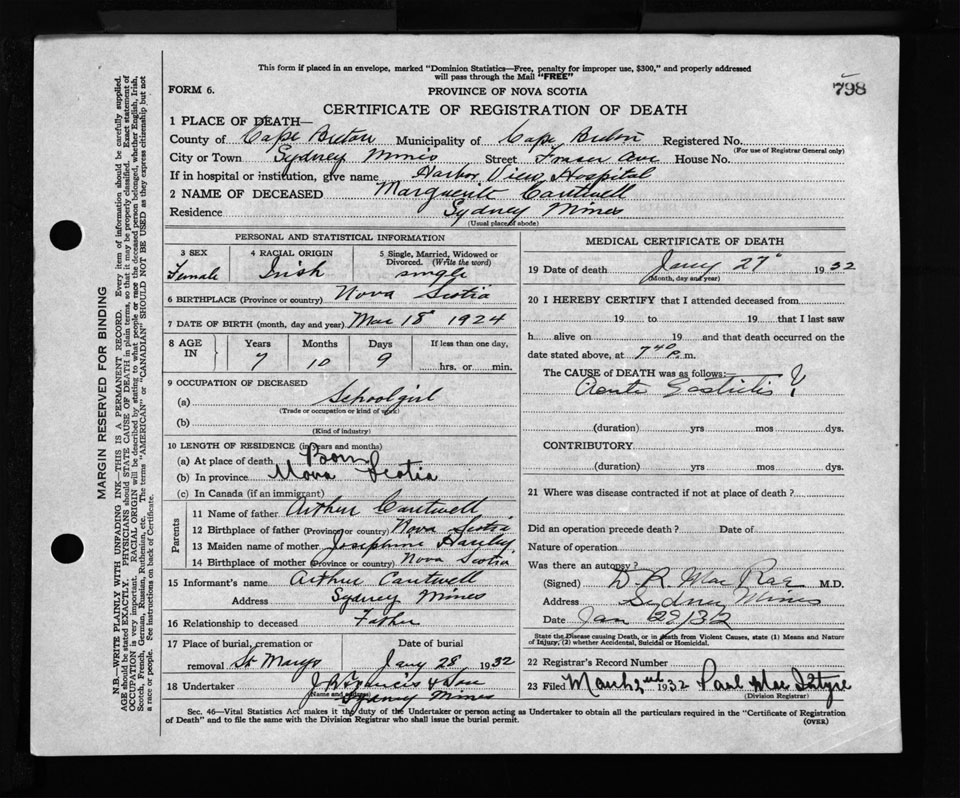 This form if placed in an envelope, marked "Dominion Statistics—Free, penalty for improper use, $300," and properly addressed
will pass through the Mail "FREE"
FORM 6.
PROVINCE OF NOVA SCOTIA
798
CERTIFICATE OF REGISTRATION OF DEATH
1 PLACE OF DEATH—
County of Cape Breton Municipality of Cape Breton Registered No.
(For use of Registrar General only)
City or Town Sydney Mines Street Fraser Ave House No.
If in hospital or institution, give name Harbor View Hospital
2 NAME OF DECEASED Marguerite Cantwell
Residence Sydney Mines
(Usual place of abode)
PERSONAL AND STATISTICAL INFORMATION
3 SEX 4 RACIAL ORIGIN 5 Single, Married, Widowed or
Divorced. (Write the word)
Female Irish single
6 BIRTHPLACE (Province or country) Nova Scotia
7 DATE OF BIRTH (month, day and year) Mar 18" 1924
8 AGE IN Years Months Days If less than one day,
7 10 9 hrs. or min.
9 OCCUPATION OF DECEASED
(a) School girl
(Trade or occupation or kind of work)
(b)
(Kind of industry)
10 LENGTH OF RESIDENCE (in years and months)
(a) At place of death Born
(b) In province Nova Scotia
(c) In Canada (if an immigrant)
Parents
11 Name of father Arthur Cantwell
12 Birthplace of father (Province or country) Nova Scotia
13 Maiden name of mother Josephine
14 Birthplace of mother (Province or country) Nova Scotia
15 Informant's name Arthur Cantwell
Address Sydney Mines
16 Relationship to deceased Father
17 Place of burial, cremation or Date of burial
removal St Marys Jany 28, 1932
18 Undertaker & Son
(Name and address)
Sydney Mines
MEDICAL CERTIFICATE OF DEATH
19 Date of death Jany 27" 1932
(Month, day and year)
20 I HEREBY CERTIFY that I attended deceased from
19 to 19 that I last saw
h alive on 19 and that death occurred on the
date stated above, at 7 40 P. m.
The CAUSE of DEATH was as follows:
Acute Gastritis ?
(duration) yrs mos dys.
CONTRIBUTORY
(duration) yrs mos dys.
21 Where was disease contracted if not at place of death?
Did an operation precede death? Date of
Nature of operation
Was there an autopsy?
(Signed) D R MacRae M.D.
Address Sydney Mines
Date Jan 29/32
State the Disease causing Death, or in death from Violent Causes, state (1) Means and Nature
of Injury, (2) whether Accidental, Suicidal or Homicidal.
22 Registrar's Record Number
23 Filed March 2nd 1932 Paul MacIntyre
(Division Registrar)
Sec. 46—Vital Statistics Act makes it the duty of the Undertaker or person acting as Undertaker to obtain all the particulars required in the "Certificate of Registration
of Death" and to file the same with the Division Registrar who shall issue the burial permit.
(OVER)
MARGIN RESERVED FOR BINDING
N.B.—WRITE PLAINLY WITH UNFADING INK—THIS IS A PERMANENT RECORD. Every item of information should be carefully supplied.
AGE should be stated EXACTLY. PHYSICIANS should STATE CAUSE OF DEATH in plain terms, so that it may be properly classified. Exact statement of
OCCUPATION is very important. RACIAL ORIGIN will be described by stating to what people or race the deceased person belonged, whether English, Irish,
Scotch, French, German, Russian, Ruthenian, etc. The terms "AMERICAN" or "CANADIAN" SHOULD NOT BE USED as they express citizenship but not
a race or people. See instructions on back of Certificate.